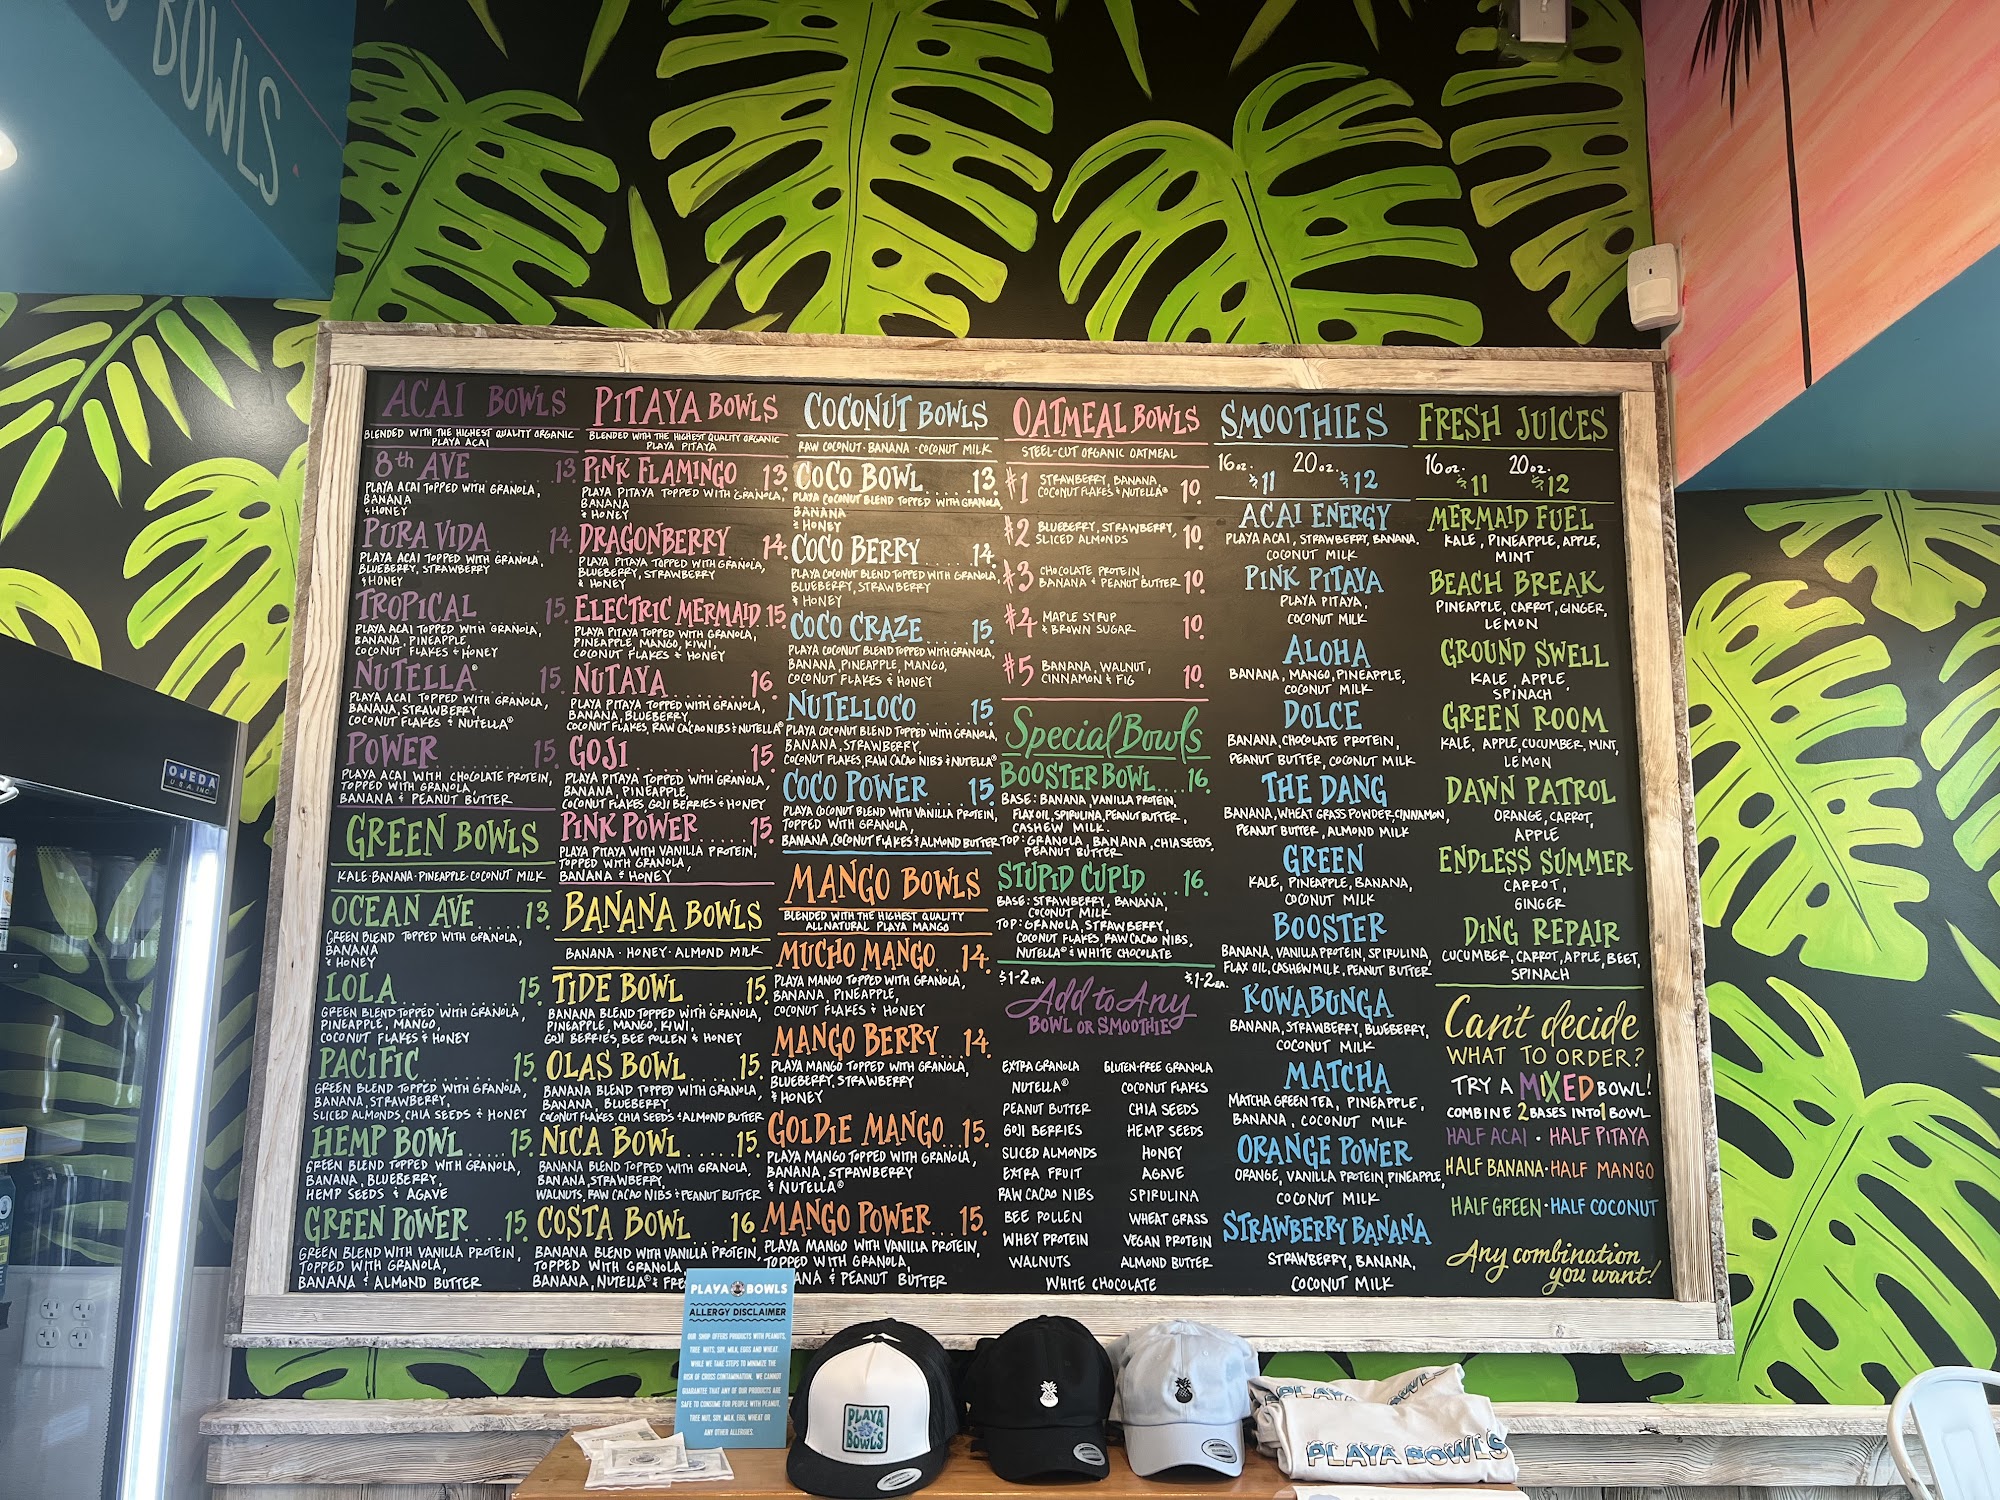 BOWLS
OJEDA
U.S.A. INC.
ACAI BOWLS
BLENDED WITH THE HIGHEST QUALITY ORGANIC
PLAYA ACAI
8th AVE 13.
PLAYA ACAI TOPPED WITH GRANOLA,
BANANA
& HONEY
PURA VIDA 14.
PLAYA ACAI TOPPED WITH GRANOLA,
BLUEBERRY, STRAWBERRY
& HONEY
TROPICAL 15.
PLAYA ACAI TOPPED WITH GRANOLA,
BANANA, PINEAPPLE,
COCONUT FLAKES & HONEY
NUTELLA® 15.
PLAYA ACAI TOPPED WITH GRANOLA,
BANANA, STRAWBERRY
COCONUT FLAKES & NUTELLA®
POWER 15.
PLAYA ACAI WITH CHOCOLATE PROTEIN,
TOPPED WITH GRANOLA,
BANANA & PEANUT BUTTER
GREEN BOWLS
KALE · BANANA · PINEAPPLE · COCONUT MILK
OCEAN AVE 13.
GREEN BLEND TOPPED WITH GRANOLA,
BANANA
& HONEY
LOLA 15.
GREEN BLEND TOPPED WITH GRANOLA,
PINEAPPLE, MANGO,
COCONUT FLAKES & HONEY
PACIFIC 15.
GREEN BLEND TOPPED WITH GRANOLA,
BANANA, STRAWBERRY,
SLICED ALMONDS, CHIA SEEDS & HONEY
HEMP BOWL 15.
GREEN BLEND TOPPED WITH GRANOLA,
BANANA, BLUEBERRY,
HEMP SEEDS & AGAVE
GREEN POWER 15.
GREEN BLEND WITH VANILLA PROTEIN,
TOPPED WITH GRANOLA,
BANANA & ALMOND BUTTER
PITAYA BOWLS
BLENDED WITH THE HIGHEST QUALITY ORGANIC
PLAYA PITAYA
PINK FLAMINGO 13.
PLAYA PITAYA TOPPED WITH GRANOLA,
BANANA
& HONEY
DRAGONBERRY 14.
PLAYA PITAYA TOPPED WITH GRANOLA,
BLUEBERRY, STRAWBERRY
& HONEY
ELECTRIC MERMAID 15.
PLAYA PITAYA TOPPED WITH GRANOLA,
PINEAPPLE, MANGO, KIWI,
COCONUT FLAKES & HONEY
NUTAYA 16.
PLAYA PITAYA TOPPED WITH GRANOLA,
BANANA, BLUEBERRY,
COCONUT FLAKES, RAW CACAO NIBS & NUTELLA®
GOJI 15.
PLAYA PITAYA TOPPED WITH GRANOLA,
BANANA, PINEAPPLE,
COCONUT FLAKES, GOJI BERRIES & HONEY
PINK POWER 15.
PLAYA PITAYA WITH VANILLA PROTEIN,
TOPPED WITH GRANOLA,
BANANA & HONEY
BANANA BOWLS
BANANA · HONEY · ALMOND MILK
TIDE BOWL 15.
BANANA BLEND TOPPED WITH GRANOLA,
PINEAPPLE, MANGO, KIWI,
GOJI BERRIES, BEE POLLEN & HONEY
OLAS BOWL 15.
BANANA BLEND TOPPED WITH GRANOLA,
BANANA, BLUEBERRY,
COCONUT FLAKES, CHIA SEEDS & ALMOND BUTTER
NICA BOWL 15.
BANANA BLEND TOPPED WITH GRANOLA,
BANANA, STRAWBERRY,
WALNUTS, RAW CACAO NIBS & PEANUT BUTTER
COSTA BOWL 16.
BANANA BLEND WITH VANILLA PROTEIN,
TOPPED WITH GRANOLA,
BANANA, NUTELLA® & FRE
COCONUT BOWLS
RAW COCONUT · BANANA · COCONUT MILK
COCO BOWL 13.
PLAYA COCONUT BLEND TOPPED WITH GRANOLA,
BANANA
& HONEY
COCO BERRY 14.
PLAYA COCONUT BLEND TOPPED WITH GRANOLA,
BLUEBERRY, STRAWBERRY
& HONEY
COCO CRAZE 15.
PLAYA COCONUT BLEND TOPPED WITH GRANOLA,
BANANA, PINEAPPLE, MANGO,
COCONUT FLAKES & HONEY
NUTELLOCO 15.
PLAYA COCONUT BLEND TOPPED WITH GRANOLA,
BANANA, STRAWBERRY,
COCONUT FLAKES, RAW CACAO NIBS & NUTELLA®
COCO POWER 15.
PLAYA COCONUT BLEND WITH VANILLA PROTEIN,
TOPPED WITH GRANOLA,
BANANA, COCONUT FLAKES & ALMOND BUTTER
MANGO BOWLS
BLENDED WITH THE HIGHEST QUALITY
ALL NATURAL PLAYA MANGO
MUCHO MANGO 14.
PLAYA MANGO TOPPED WITH GRANOLA,
BANANA, PINEAPPLE,
COCONUT FLAKES & HONEY
MANGO BERRY 14.
PLAYA MANGO TOPPED WITH GRANOLA,
BLUEBERRY, STRAWBERRY
& HONEY
GOLDIE MANGO 15.
PLAYA MANGO TOPPED WITH GRANOLA,
BANANA, STRAWBERRY
& NUTELLA®
MANGO POWER 15.
PLAYA MANGO WITH VANILLA PROTEIN,
TOPPED WITH GRANOLA,
ANA & PEANUT BUTTER
OATMEAL BOWLS
STEEL-CUT ORGANIC OATMEAL
#1 STRAWBERRY, BANANA, 10.
COCONUT FLAKES & NUTELLA®
#2 BLUEBERRY, STRAWBERRY, 10.
SLICED ALMONDS
#3 CHOCOLATE PROTEIN, 10.
BANANA & PEANUT BUTTER
#4 MAPLE SYRUP 10.
& BROWN SUGAR
#5 BANANA, WALNUT, 10.
CINNAMON & FIG
Special Bowls
BOOSTER BOWL 16.
BASE: BANANA, VANILLA PROTEIN,
FLAX OIL, SPIRULINA, PEANUT BUTTER,
CASHEW MILK.
TOP: GRANOLA, BANANA, CHIA SEEDS,
PEANUT BUTTER
STUPID CUPID 16.
BASE: STRAWBERRY, BANANA,
COCONUT MILK
TOP: GRANOLA, STRAWBERRY,
COCONUT FLAKES, RAW CACAO NIBS,
NUTELLA® & WHITE CHOCOLATE
$1-2 ea. $1-2 ea.
Add to Any
BOWL OR SMOOTHIE
EXTRA GRANOLA GLUTEN-FREE GRANOLA
NUTELLA® COCONUT FLAKES
PEANUT BUTTER CHIA SEEDS
GOJI BERRIES HEMP SEEDS
SLICED ALMONDS HONEY
EXTRA FRUIT AGAVE
RAW CACAO NIBS SPIRULINA
BEE POLLEN WHEAT GRASS
WHEY PROTEIN VEGAN PROTEIN
WALNUTS ALMOND BUTTER
WHITE CHOCOLATE
SMOOTHIES
16 oz. $11 20 oz. $12
ACAI ENERGY
PLAYA ACAI, STRAWBERRY, BANANA,
COCONUT MILK
PINK PITAYA
PLAYA PITAYA,
COCONUT MILK
ALOHA
BANANA, MANGO, PINEAPPLE,
COCONUT MILK
DOLCE
BANANA, CHOCOLATE PROTEIN,
PEANUT BUTTER, COCONUT MILK
THE DANG
BANANA, WHEAT GRASS POWDER, CINNAMON,
PEANUT BUTTER, ALMOND MILK
GREEN
KALE, PINEAPPLE, BANANA,
COCONUT MILK
BOOSTER
BANANA, VANILLA PROTEIN, SPIRULINA,
FLAX OIL, CASHEW MILK, PEANUT BUTTER
KOWABUNGA
BANANA, STRAWBERRY, BLUEBERRY,
COCONUT MILK
MATCHA
MATCHA GREEN TEA, PINEAPPLE,
BANANA, COCONUT MILK
ORANGE POWER
ORANGE, VANILLA PROTEIN, PINEAPPLE,
COCONUT MILK
STRAWBERRY BANANA
STRAWBERRY, BANANA,
COCONUT MILK
FRESH JUICES
16 oz. $11 20 oz. $12
MERMAID FUEL
KALE, PINEAPPLE, APPLE,
MINT
BEACH BREAK
PINEAPPLE, CARROT, GINGER,
LEMON
GROUND SWELL
KALE, APPLE,
SPINACH
GREEN ROOM
KALE, APPLE, CUCUMBER, MINT,
LEMON
DAWN PATROL
ORANGE, CARROT,
APPLE
ENDLESS SUMMER
CARROT,
GINGER
DING REPAIR
CUCUMBER, CARROT, APPLE, BEET,
SPINACH
Can't decide
WHAT TO ORDER?
TRY A MIXED BOWL!
COMBINE 2 BASES INTO 1 BOWL
HALF ACAI · HALF PITAYA
HALF BANANA · HALF MANGO
HALF GREEN · HALF COCONUT
Any combination
you want!
PLAYA BOWLS
ALLERGY DISCLAIMER
OUR SHOP OFFERS PRODUCTS WITH PEANUTS,
TREE NUTS, SOY, MILK, EGGS AND WHEAT.
WHILE WE TAKE STEPS TO MINIMIZE THE
RISK OF CROSS CONTAMINATION, WE CANNOT
GUARANTEE THAT ANY OF OUR PRODUCTS ARE
SAFE TO CONSUME FOR PEOPLE WITH PEANUT,
TREE NUT, SOY, MILK, EGG, WHEAT OR
ANY OTHER ALLERGIES.
PLAYA
BOWLS
PLAYA BOWLS
PLAYA BOWLS